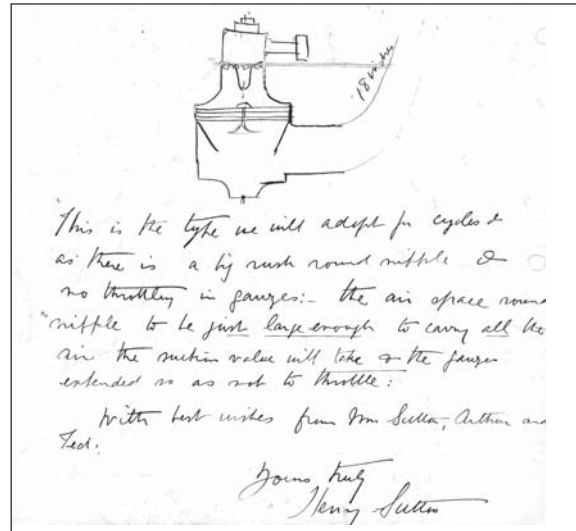 18 inches
This is the type we will adopt for cycles &
as there is a big rush round nipple &
no throttling in gauzes:- the air space round
nipple to be just large enough to carry all the
air the suction valve will take & the gauzes
extended so as not to throttle:
With best wishes from Mrs Sutton, Arthur and
Ted.
Yours truly
Henry Sutton